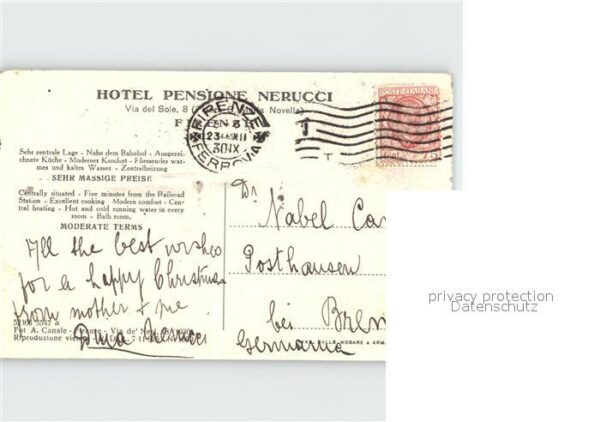 HOTEL PENSIONE NERUCCI
Via del Sole, 8 Novella)
FIRENZE
FERROVIA
POSTE ITALIANE
Sehr centrale Lage - Nahe dem Bahnhof - Ausgezei-
chnete Küche - Moderner Komfort - Fliessendes war-
mes und kaltes Wasser - Zentralheizung
SEHR MASSIGE PREISE
Centrally situated - Five minutes from the Railroad
Station - Excellent cooking - Modern comfort - Cen-
tral heating - Hot and cold running water in every
room - Bath room.
MODERATE TERMS
All the best wishes
for a happy Christmas
from mother + me
Fot A. Canale - Firenze - Via de'
Riproduzione
Dr.
Nabel
Posthausen
bei
Germania
privacy protection
Datenschutz